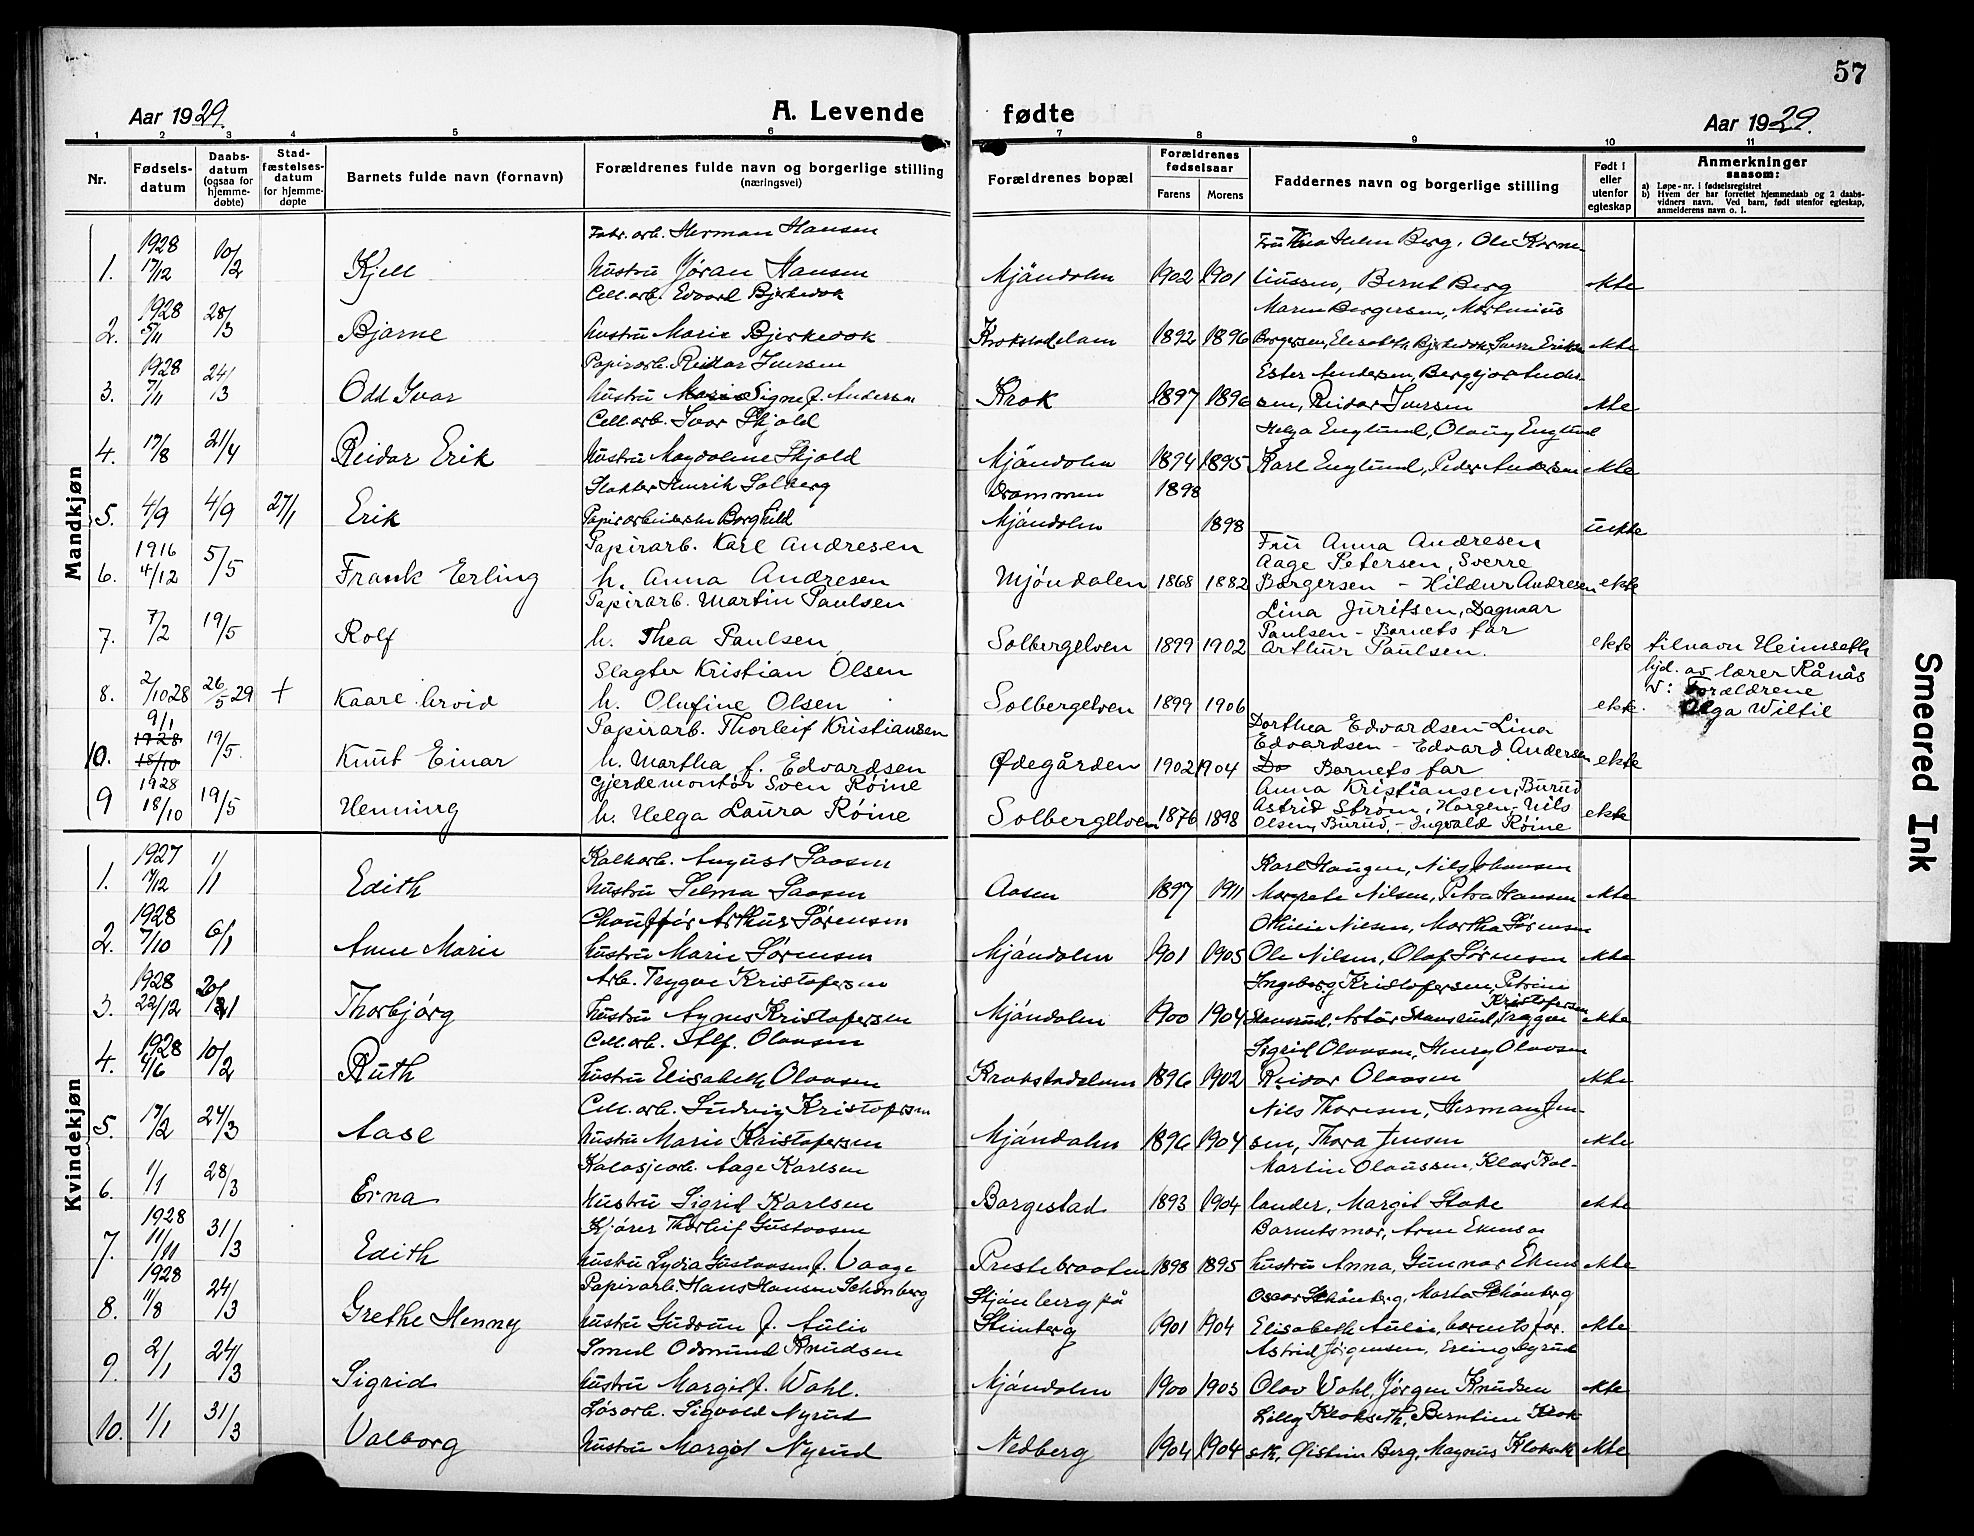 57
Aar 1929. A. Levende fødte Aar 1929.
1 2 3 4 5 6 7 8 9 10 11
Nr. Fødsels-datum Daabs-datum (ogsaa for hjemme-døbte) Stad-fæstelses-datum for hjemme-døpte Barnets fulde navn (fornavn) Forældrenes fulde navn og borgerlige stilling (næringsvei) Forældrenes bopæl Forældrenes fødselsaar Farens Morens Faddernes navn og borgerlige stilling Født i eller utenfor egteskap Anmerkninger saasom:
a) Løpe-nr. i fødselsregistret
b) Hvem der har forrettet hjemmedaab og 2 daabs-vidners navn. Ved barn, født utenfor egteskap, anmelderens navn o. l.
Mandkjøn
1. 1928 17/12 10/2 Kjell Fabr. arb. Herman Hansen
hustru Jøran Hansen Mjöndalen 1902 1901 Fru Thea Helen Berg, Ole Korne
liussen, Bernt Berg ekte
2. 1928 5/11 28/3 Bjarne Cell. arb. Edvard Bjerkedok
hustru Marie Bjerkedok Krokstadelven 1892 1896 Maren Borgersen, Martinius
Borgersen, Elisabeth Bjerkedok, Sverre Eriksen ekte
3. 1928 7/11 24/3 Odd Ivar Papirarb. Reidar Iversen
hustru Signe f. Andersen Krok 1897 1896 Ester Andersen, Bergljot Ander-
sen, Reidar Iversen ekte
4. 17/8 21/4 Reidar Erik Cell. arb. Ivar Skjold
hustru Magdalene Skjold Mjöndalen 1894 1895 Helga Englund, Olaug Englund
Karl Englund, Peder Andersen ekte
5. 4/9 4/9 27/1 Erik Slakter Henrik Solberg Drammen 1898
Papirarbeiderske Borghild Mjöndalen 1898 uekte
6. 1916 4/12 5/5 Frank Erling Papirarb. Karl Andresen
h. Anna Andresen Mjöndalen 1868 1882 Fru Anna Andresen
Aage Petersen, Sverre
Borgersen - Hildur Andresen ekte
7. 7/2 19/5 Rolf Papirarb. Martin Paulsen
h. Thea Paulsen Solbergelven 1899 1902 Lina Juritsen, Dagmar
Paulsen - Barnets far
Arthur Paulsen. ekte tilnavn Heimseth
8. 2/10 28 26/5 29 + Kaare Arvid Slagter Kristian Olsen
h. Olufine Olsen Solbergelven 1899 1906 ekte hjd. av lærer Rånås
V: Forældrene
Olga Wiltil
10. 9/1 1928 18/10 19/5 Knut Einar Papirarb. Thorleif Kristiansen
h. Martha f. Edvardsen Ødegården 1902 1904 Dorthea Edvardsen - Lina
Edvardsen - Edvard Andersen
Do Barnets far ekte
9 1928 18/10 19/5 Henning Gjerdemontør Sven Röine
h. Helga Laura Röine Solbergelven 1876 1898 Anna Kristiansen, Burud
Astrid Strøm, Horgen - Nils
Olsen, Burud, - Ingvald Röine ekte
Kvindekjøn
1. 1927 17/12 1/1 Edith Kalkarb. August Saasen
hustru Selma Saasen Aasen 1897 1911 Karl Haugen, Nils Johansen
Margrete Nilsen, Petra Hansen ekte
2. 1928 7/10 6/1 Anne Marie Chauffør Arthur Sørensen
hustru Marie Sørensen Mjöndalen 1901 1905 Othilie Nilsen, Martha Sørensen
Ole Nilsen, Olaf Sørensen ekte
3. 1928 22/12 20/1 Thorbjörg Arb. Trygve Kristofersen
hustru Agnes Kristofersen Mjöndalen 1900 1904 Ingeborg Kristofersen, Petrine
Skansrud, Astor Skansrud, Trygve Kristofersen ekte
4. 1928 4/6 10/2 Ruth Cell. arb. Alf. Olavsen
hustru Elisabeth Olavsen Krokstadelven 1896 1902 Sigrid Olavsen, Henry Olavsen
Reidar Olavsen ekte
5. 17/2 24/3 Aase Cell. arb. Ludvig Kristofersen
hustru Marie Kristofersen Mjöndalen 1896 1904 Nils Thoresen, Herman Jen-
sen, Thora Jensen ekte
6. 1/1 28/3 Erna Kalosjearb. Aage Karlsen
hustru Sigrid Karlsen Borgestad 1893 1904 Martin Olaussen, Klar Kal-
lander, Margit Stake ekte
7. 1928 11/11 31/3 Edith Kjører Thorleif Gustavsen
hustru Lydia Gustavsen f. Vaage Prestebraaten 1898 1895 Barnets mor, Arne Ekens og
hustru Anna, Gunnar Ekens ekte
8. 1928 11/8 24/3 Grethe Henny Papirarb. Hans Hansen Schönberg
hustru Gudrun f. Aulie Stjönberg på
Steinberg 1901 1904 Oscar Schönberg, Marta Schönberg
Elisabeth Aulie, barnets far. ekte
9. 2/1 24/3 Sigrid Smed Odmund Knudsen
hustru Margit f. Wahl. Mjöndalen 1900 1903 Astrid Jörgensen, Erling Nyrud
Olav Vahl, Jørgen Knudsen ekte
10. 1/1 31/3 Valborg Løsarb. Sigvald Nyrud
hustru Margit Nyrud Nedberg 1904 1904 Lilly Klokseth, Berntine Klok
seth, Øistein Berg, Magnus Klokseth ekte
Smeared Ink